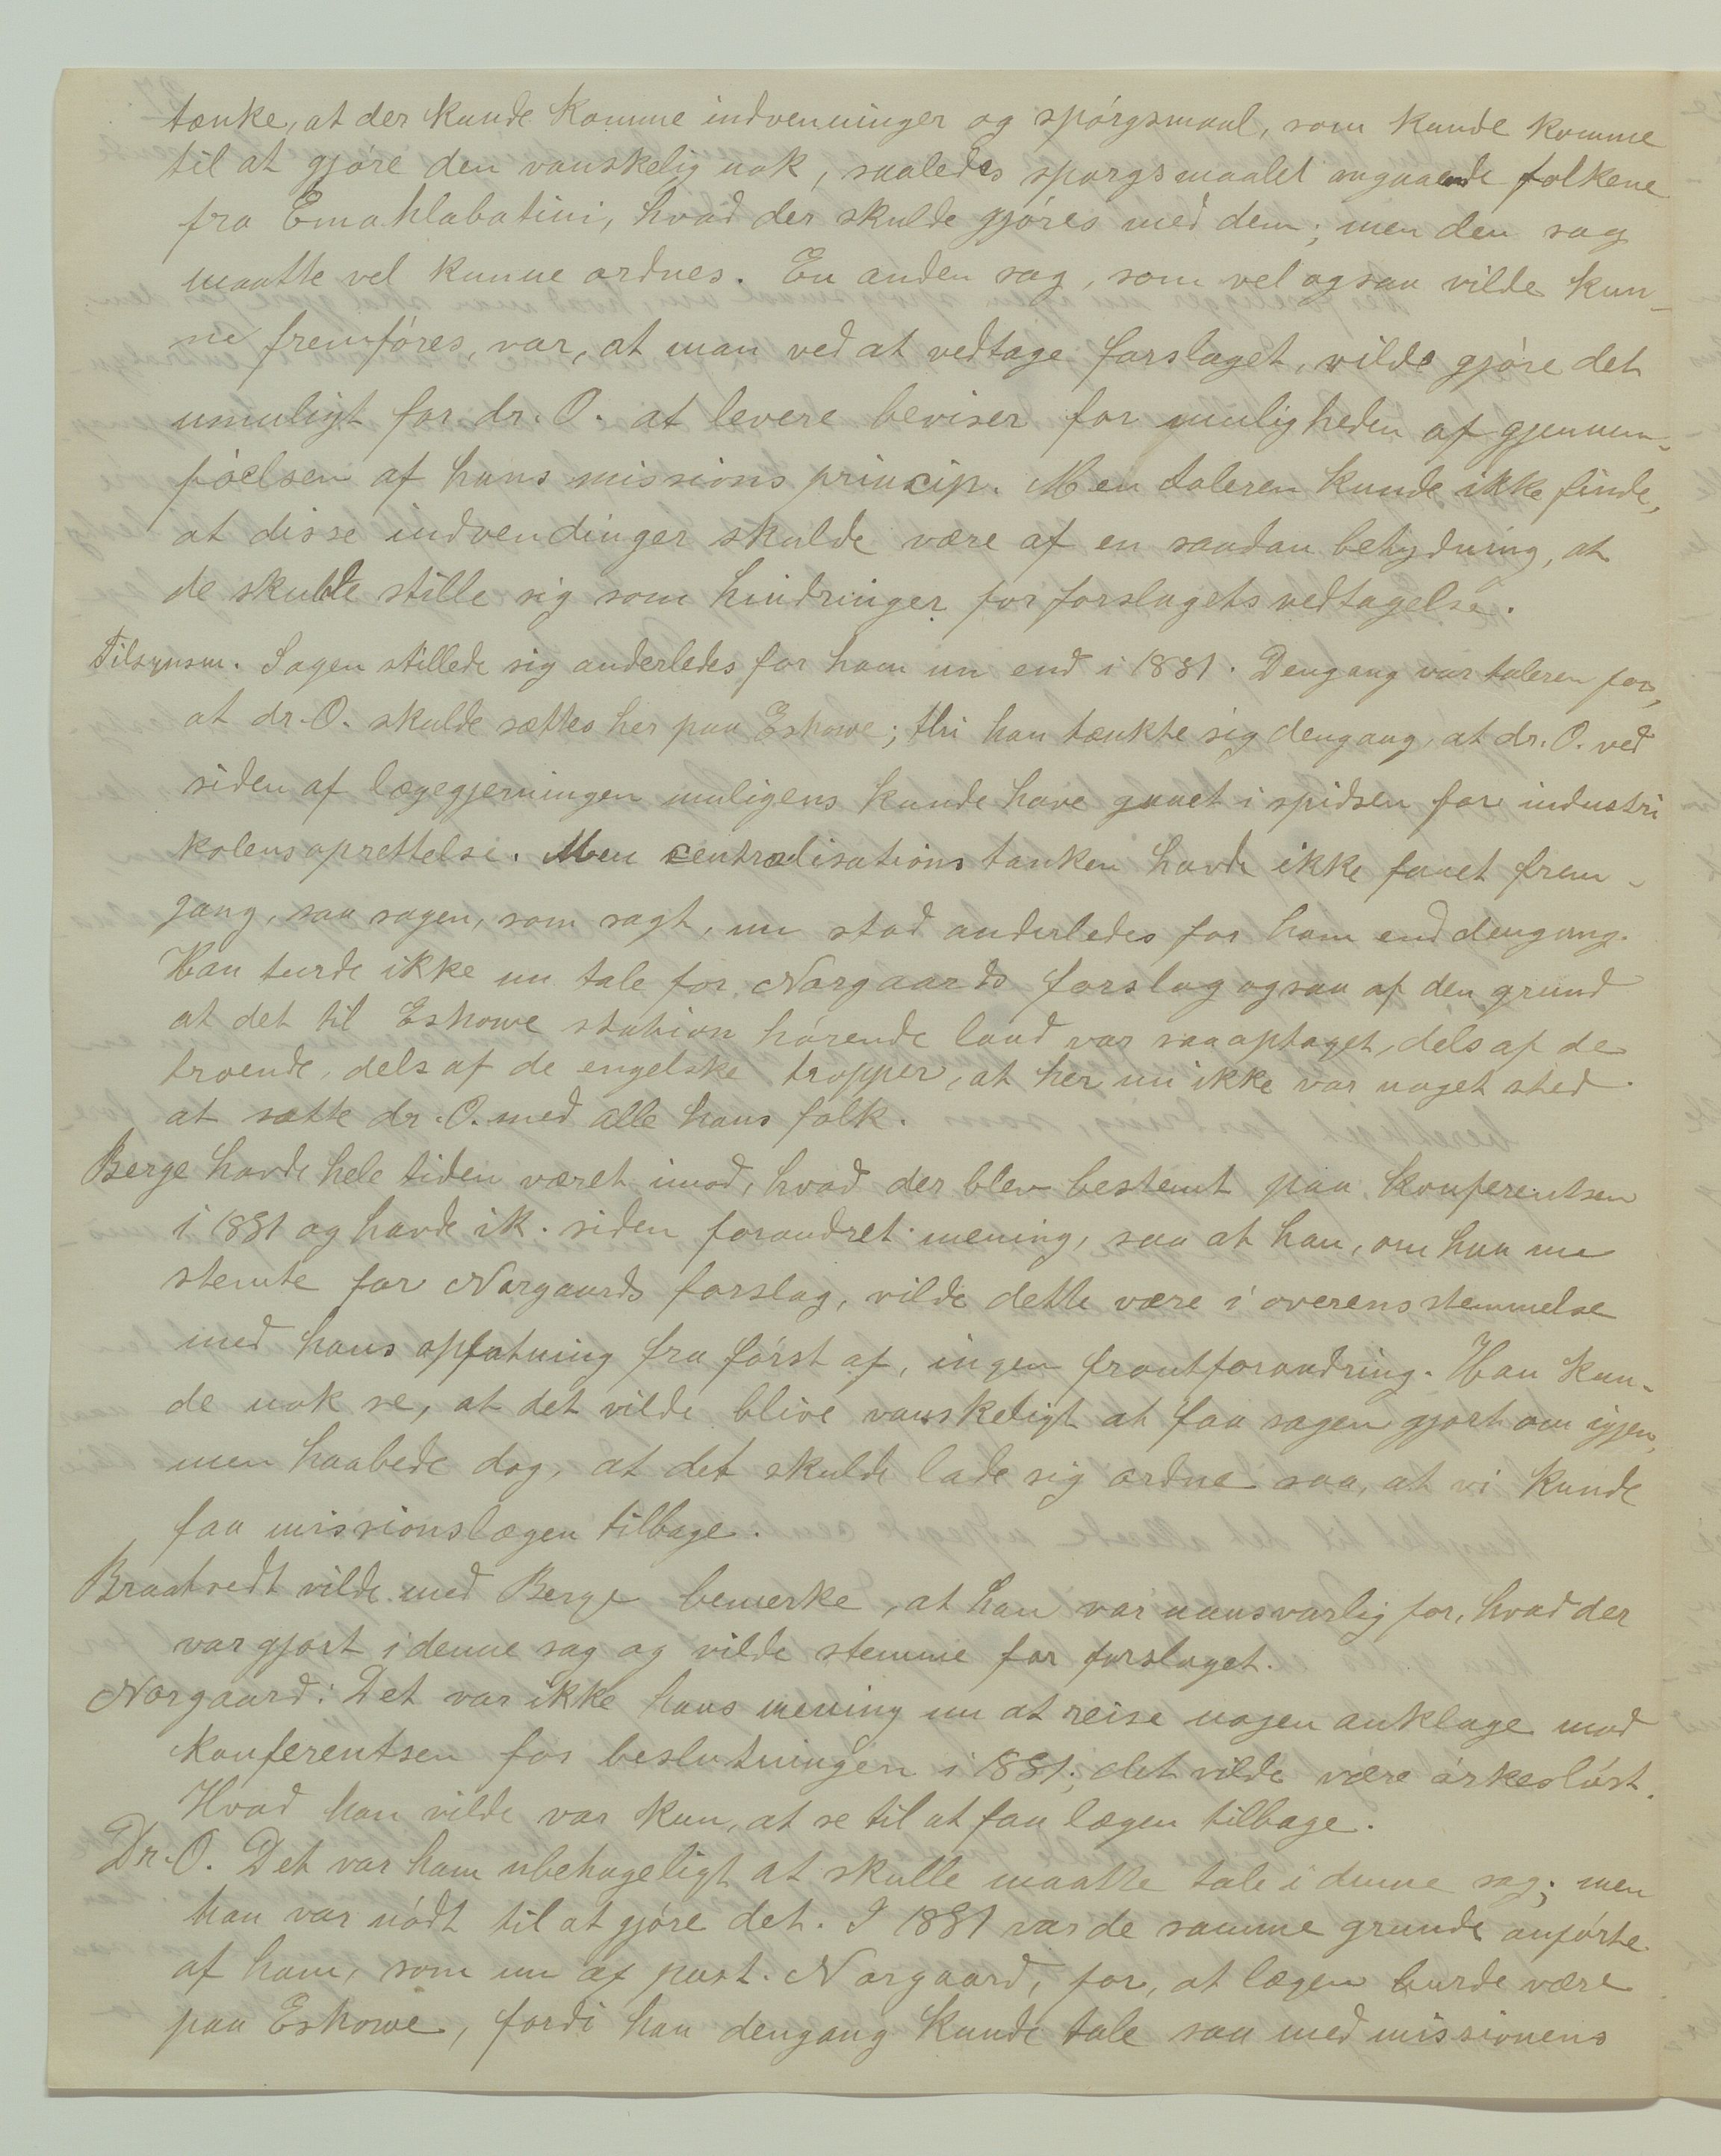 tænke, at der kunde komme indvenninger og spórgsmaal, som kunde komme
til at gjóre den vanskelig nok, saaledes spørgsmaalet angaaende folkene
fra Emahlabatini, hvad der skulde gjóres med dem; men den sag
maatte vel kunne ordnes. En anden sag, som vel ogsaa vilde kun-
ne fremfóres, var, at man ved at vedtage forslaget, vilde gjóre det
umuligt for dr. O. at levere beviser for muligheden af gjennem-
fóelsen af hans missions princip. Men taleren kunde ikke finde,
at disse indvendinger skulde være af en saadan betydning, at
de skulde stille sig som hindringer for forslagets vedtagelse.
Tilsynsm. Sagen stillede sig anderledes for ham nu end i 1881. Dengang var taleren for,
at dr. O. skulde sættes her paa Eshowe; thi han tænkte sig dengang, at dr. O. ved
siden af lægegjerningen muligens kunde have gaaet i spidsen for industri
kolens oprettelse. Men centralisations tanken havde ikke faaet frem-
gang, saa sagen, som sagt, nu stod anderledes for ham end dengang.
Han turde ikke nu tale for Norgaards forslag ogsaa af den grund
at det til Eshowe station hórende land var saa optaget, dels af de
troende, dels af de engelske tropper, at her nu ikke var noget sted
at sætte dr. O. med alle hans folk.
Berge havde hele tiden været imod, hvad der blev bestemt paa konferentsen
i 1881 og havde ik. siden forandret mening, saa at han, om han nu
stemte for Norgaards forslag, vilde dette være i overensstemmelse
med hans opfatning fra fórst af, ingen frontforandring. Han kun-
de nok se, at det vilde blive vanskeligt at faa sagen gjort om igjen,
men haabede dog, at det skulde lade sig ordne saa, at vi kunde
faa missionslægen tilbage.
Braatvedt vilde med Berge bemerke, at han var uansvarlig for, hvad der
var gjort i denne sag og vilde stemme for forslaget.
Norgaard: Det var ikke hans mening nu at reise nogen anklage mod
konferentsen for beslutningen i 1881; det vilde være órkeslóst.
Hvad han vilde var kun, at se til at faa lægen tilbage.
Dr. O. Det var ham ubehageligt at skulle maatte tale i denne sag; men
han var nódt til at gjóre det. I 1881 var de samme grunde anfórte
af ham, som nu af past. Norgaard, for, at lægen burde være
paa Eshowe, fordi han dengang kunde tale saa med missionens